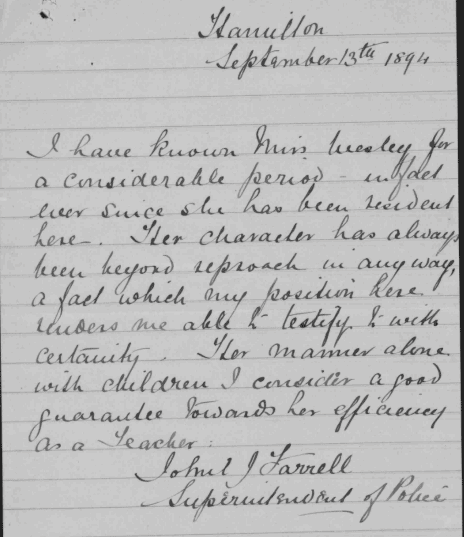 Hamilton
September 13th 1894
I have known Miss Wesley for
a considerable period - in fact
ever since she has been resident
here. Her character has always
been beyond reproach in any way,
a fact which my position here
renders me able to testify to with
certainty. Her manner alone
with children I consider a good
guarantee towards her efficiency
as a Teacher.
John J Farrell
Superintendent of Police